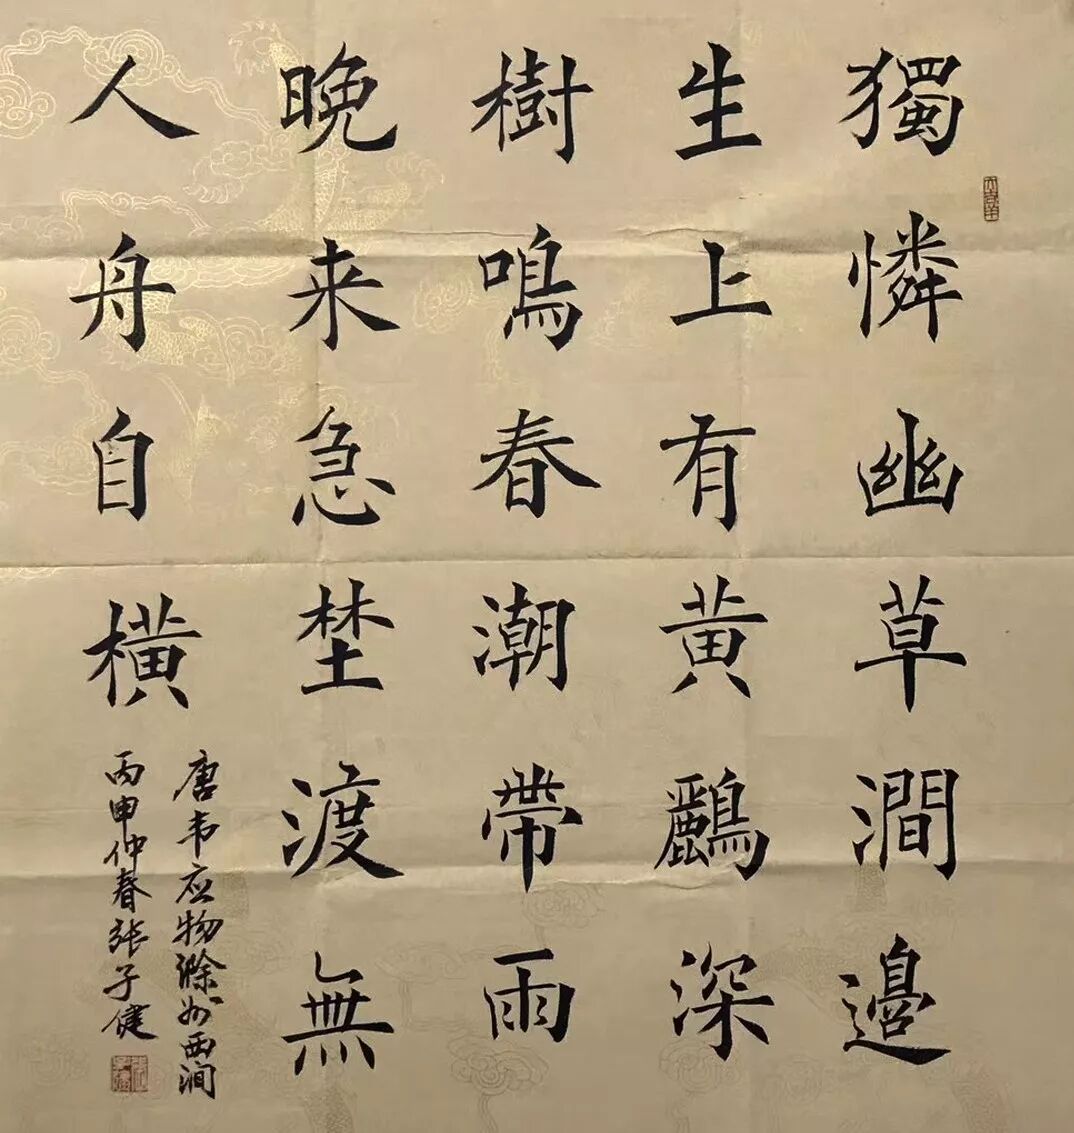 獨憐幽草澗邊
生上有黄鸝深
樹鳴春潮帶雨
晩来急埜渡無
人舟自橫
唐韦应物滁州西涧
丙申仲春张子健